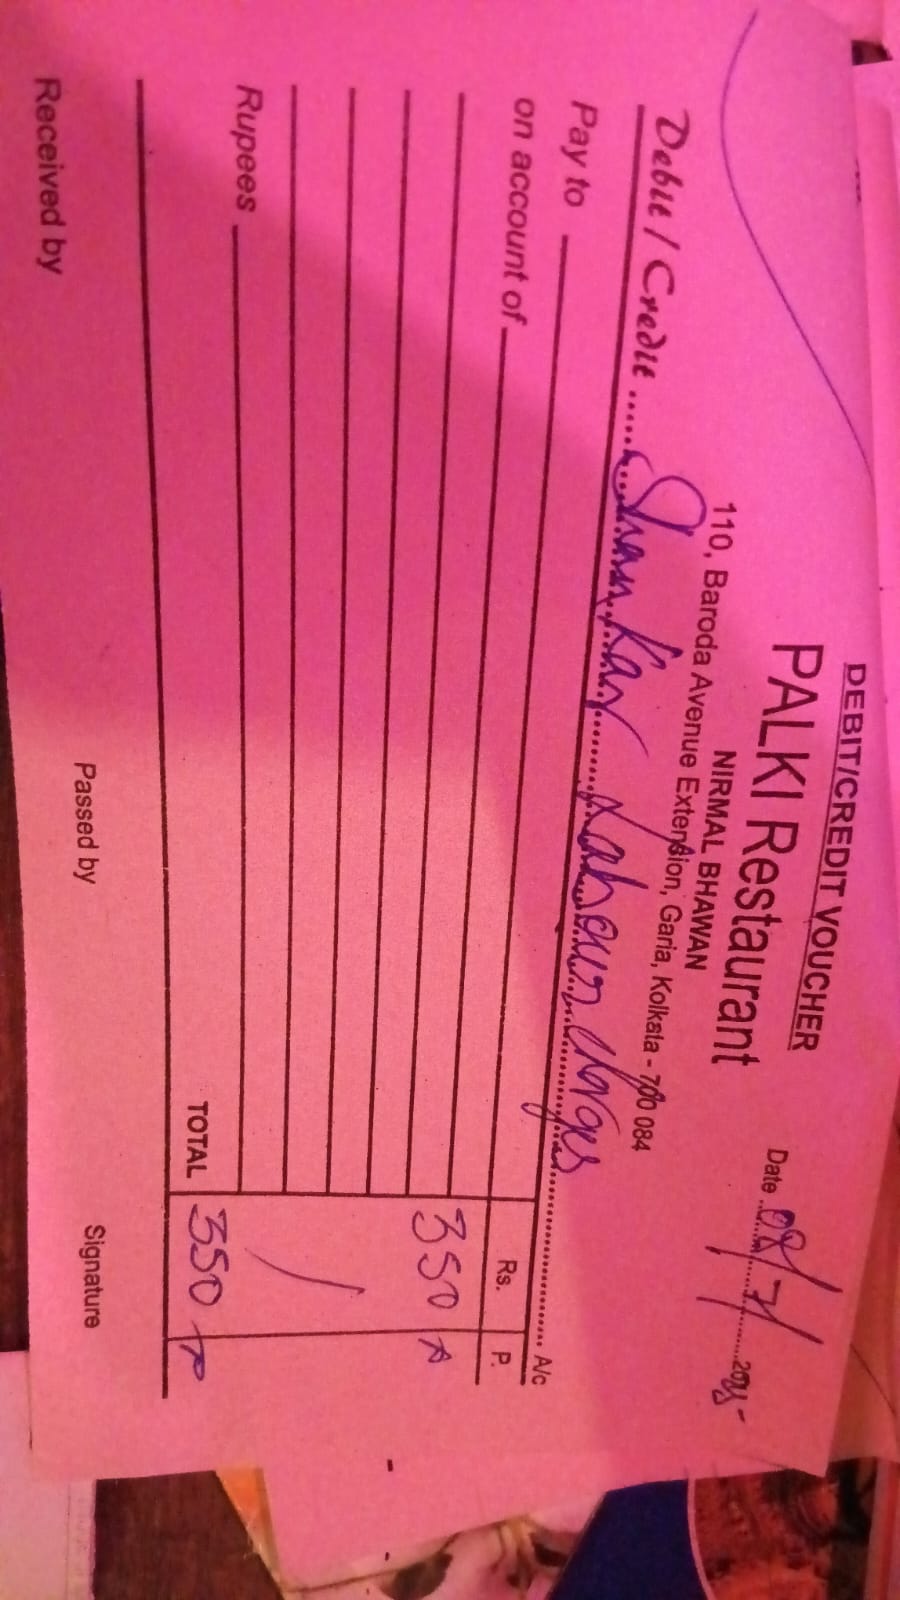 DEBIT/CREDIT VOUCHER
PALKI Restaurant
NIRMAL BHAWAN
110, Baroda Avenue Extension, Garia, Kolkata - 700 084
Date 08/7/
Debit / Credit Shankar Labour charges A/c
Pay to
on account of
Rs. P.
350
Rupees
TOTAL 350
Received by Passed by Signature